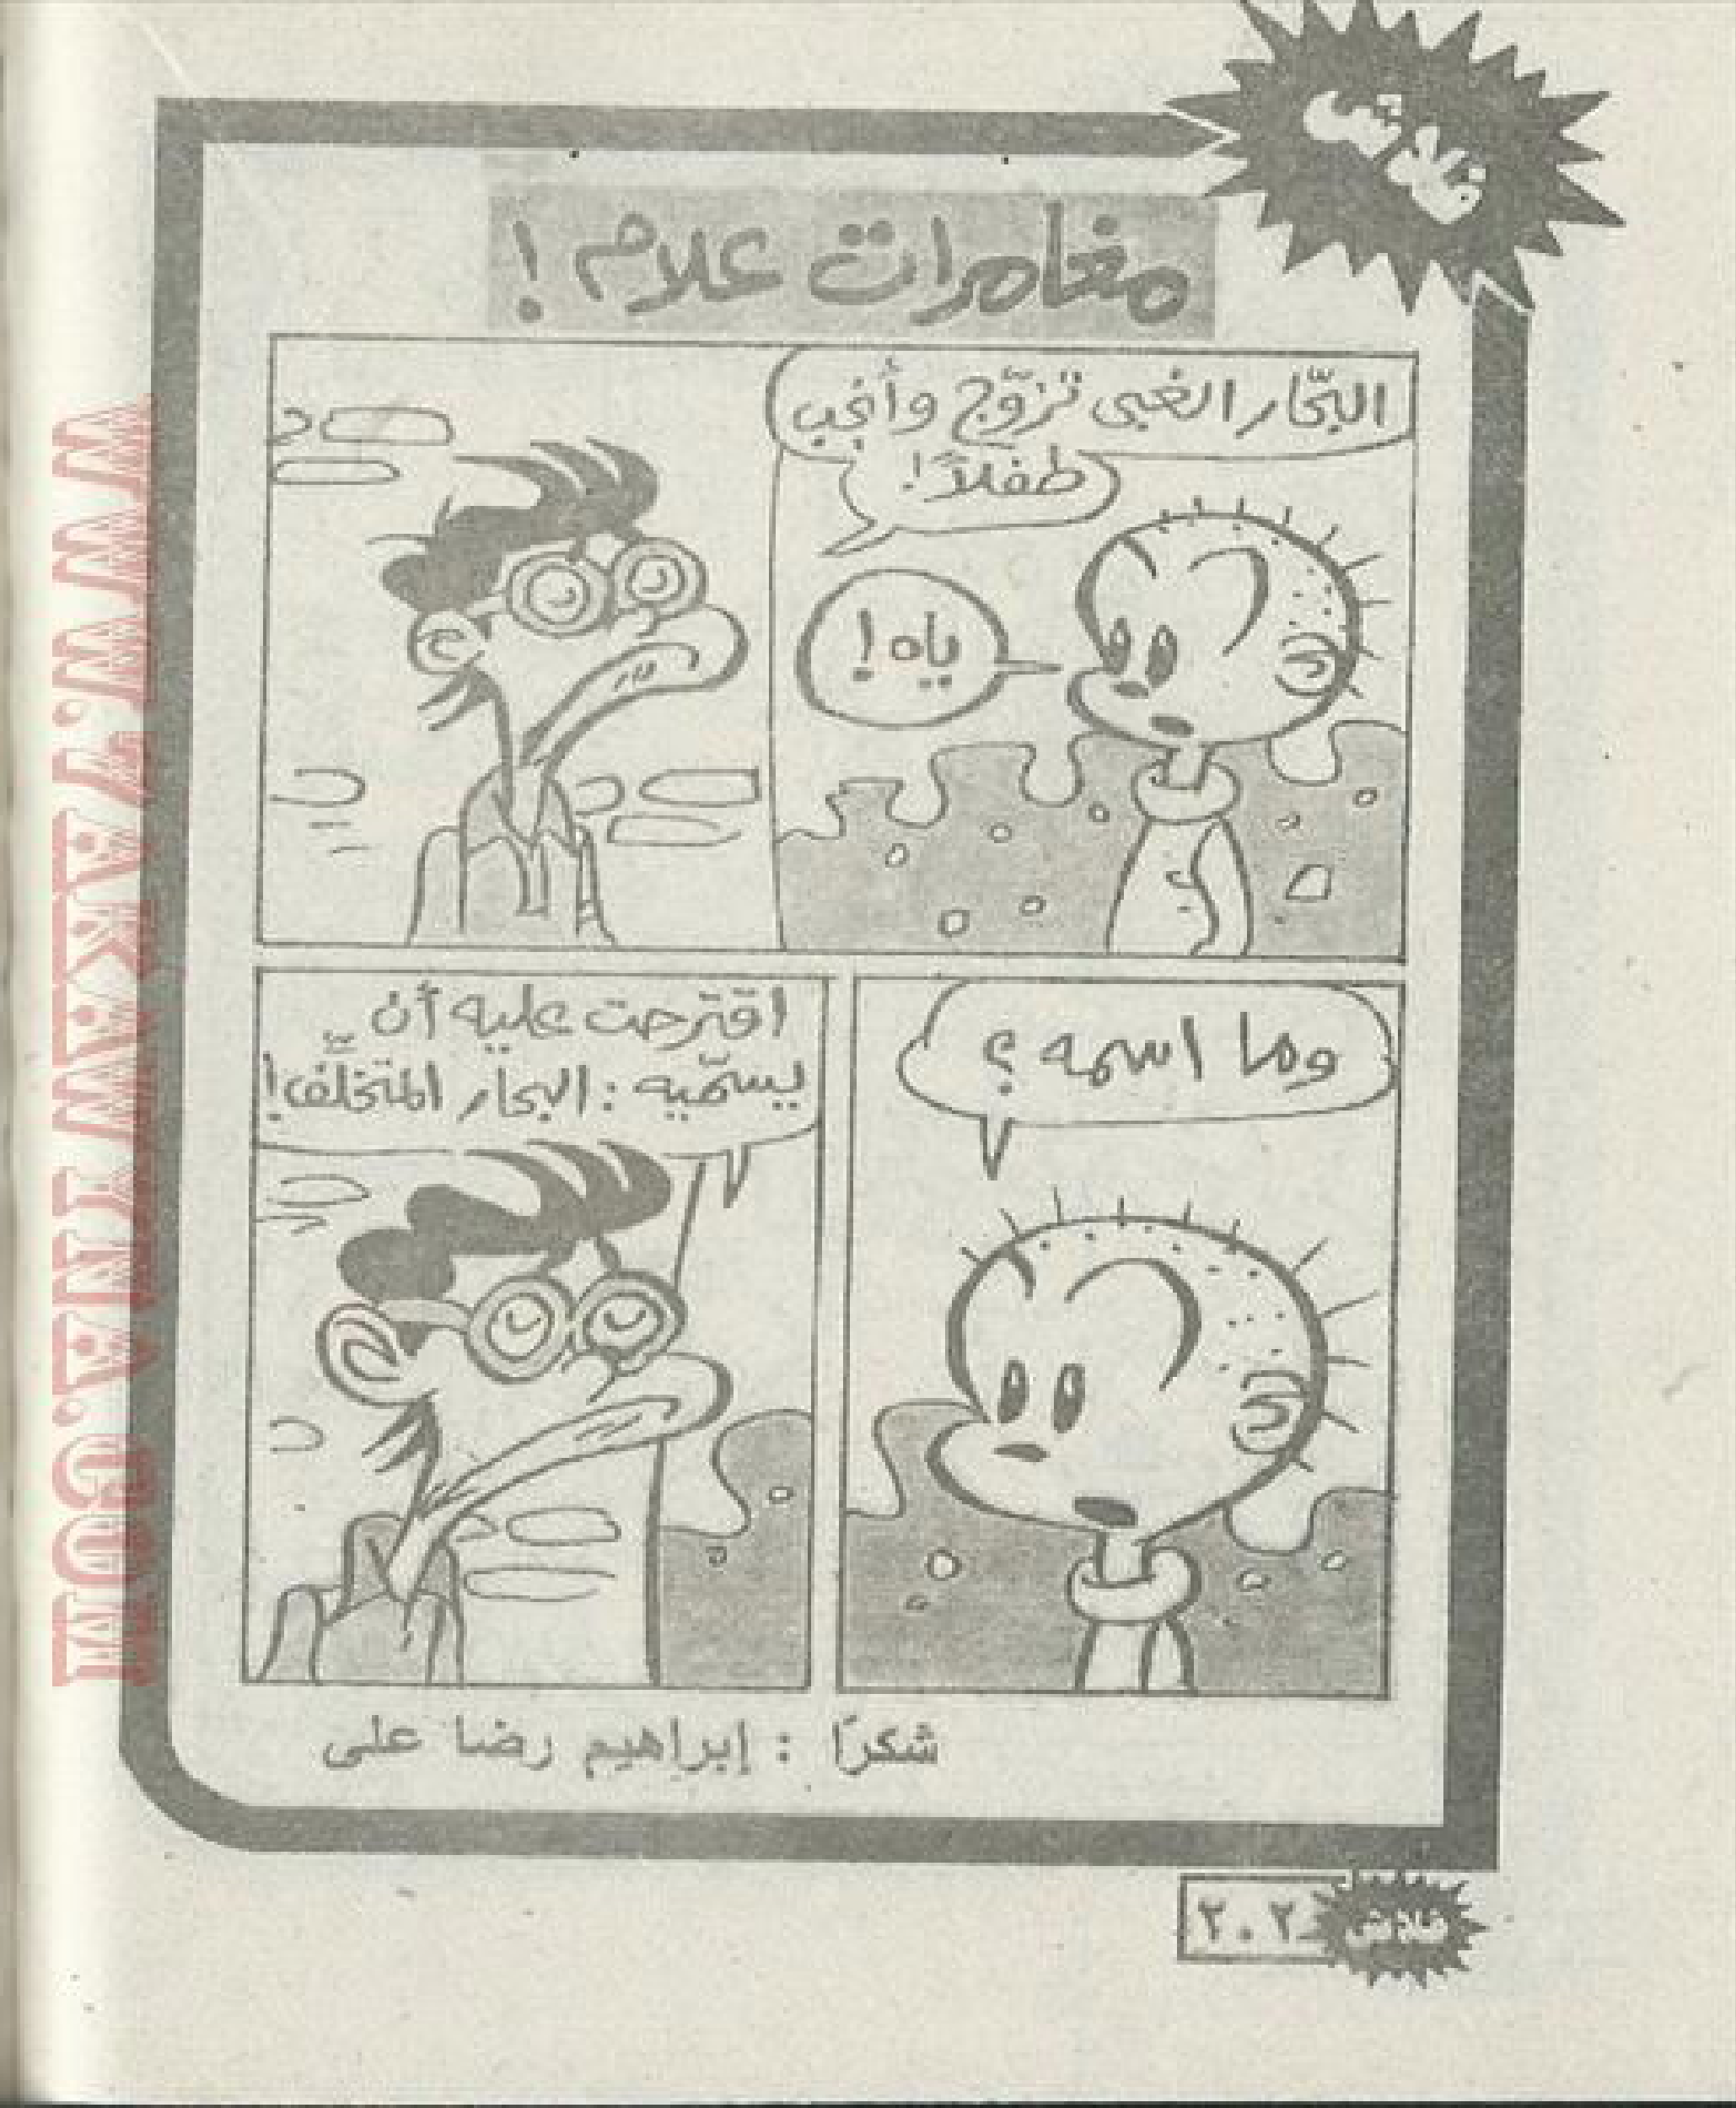 فلاش
مغامرات علام!
البحّار الغبى تزوّج وأنجب
طفلاً!
ياه!
وما اسمه؟
اقترحت عليه أن
يسمّيه: البحار المتخلّف!
شكرًا : إبراهيم رضا على
فلاش
٢٠٢
WWW.7AKAWYNA.COM